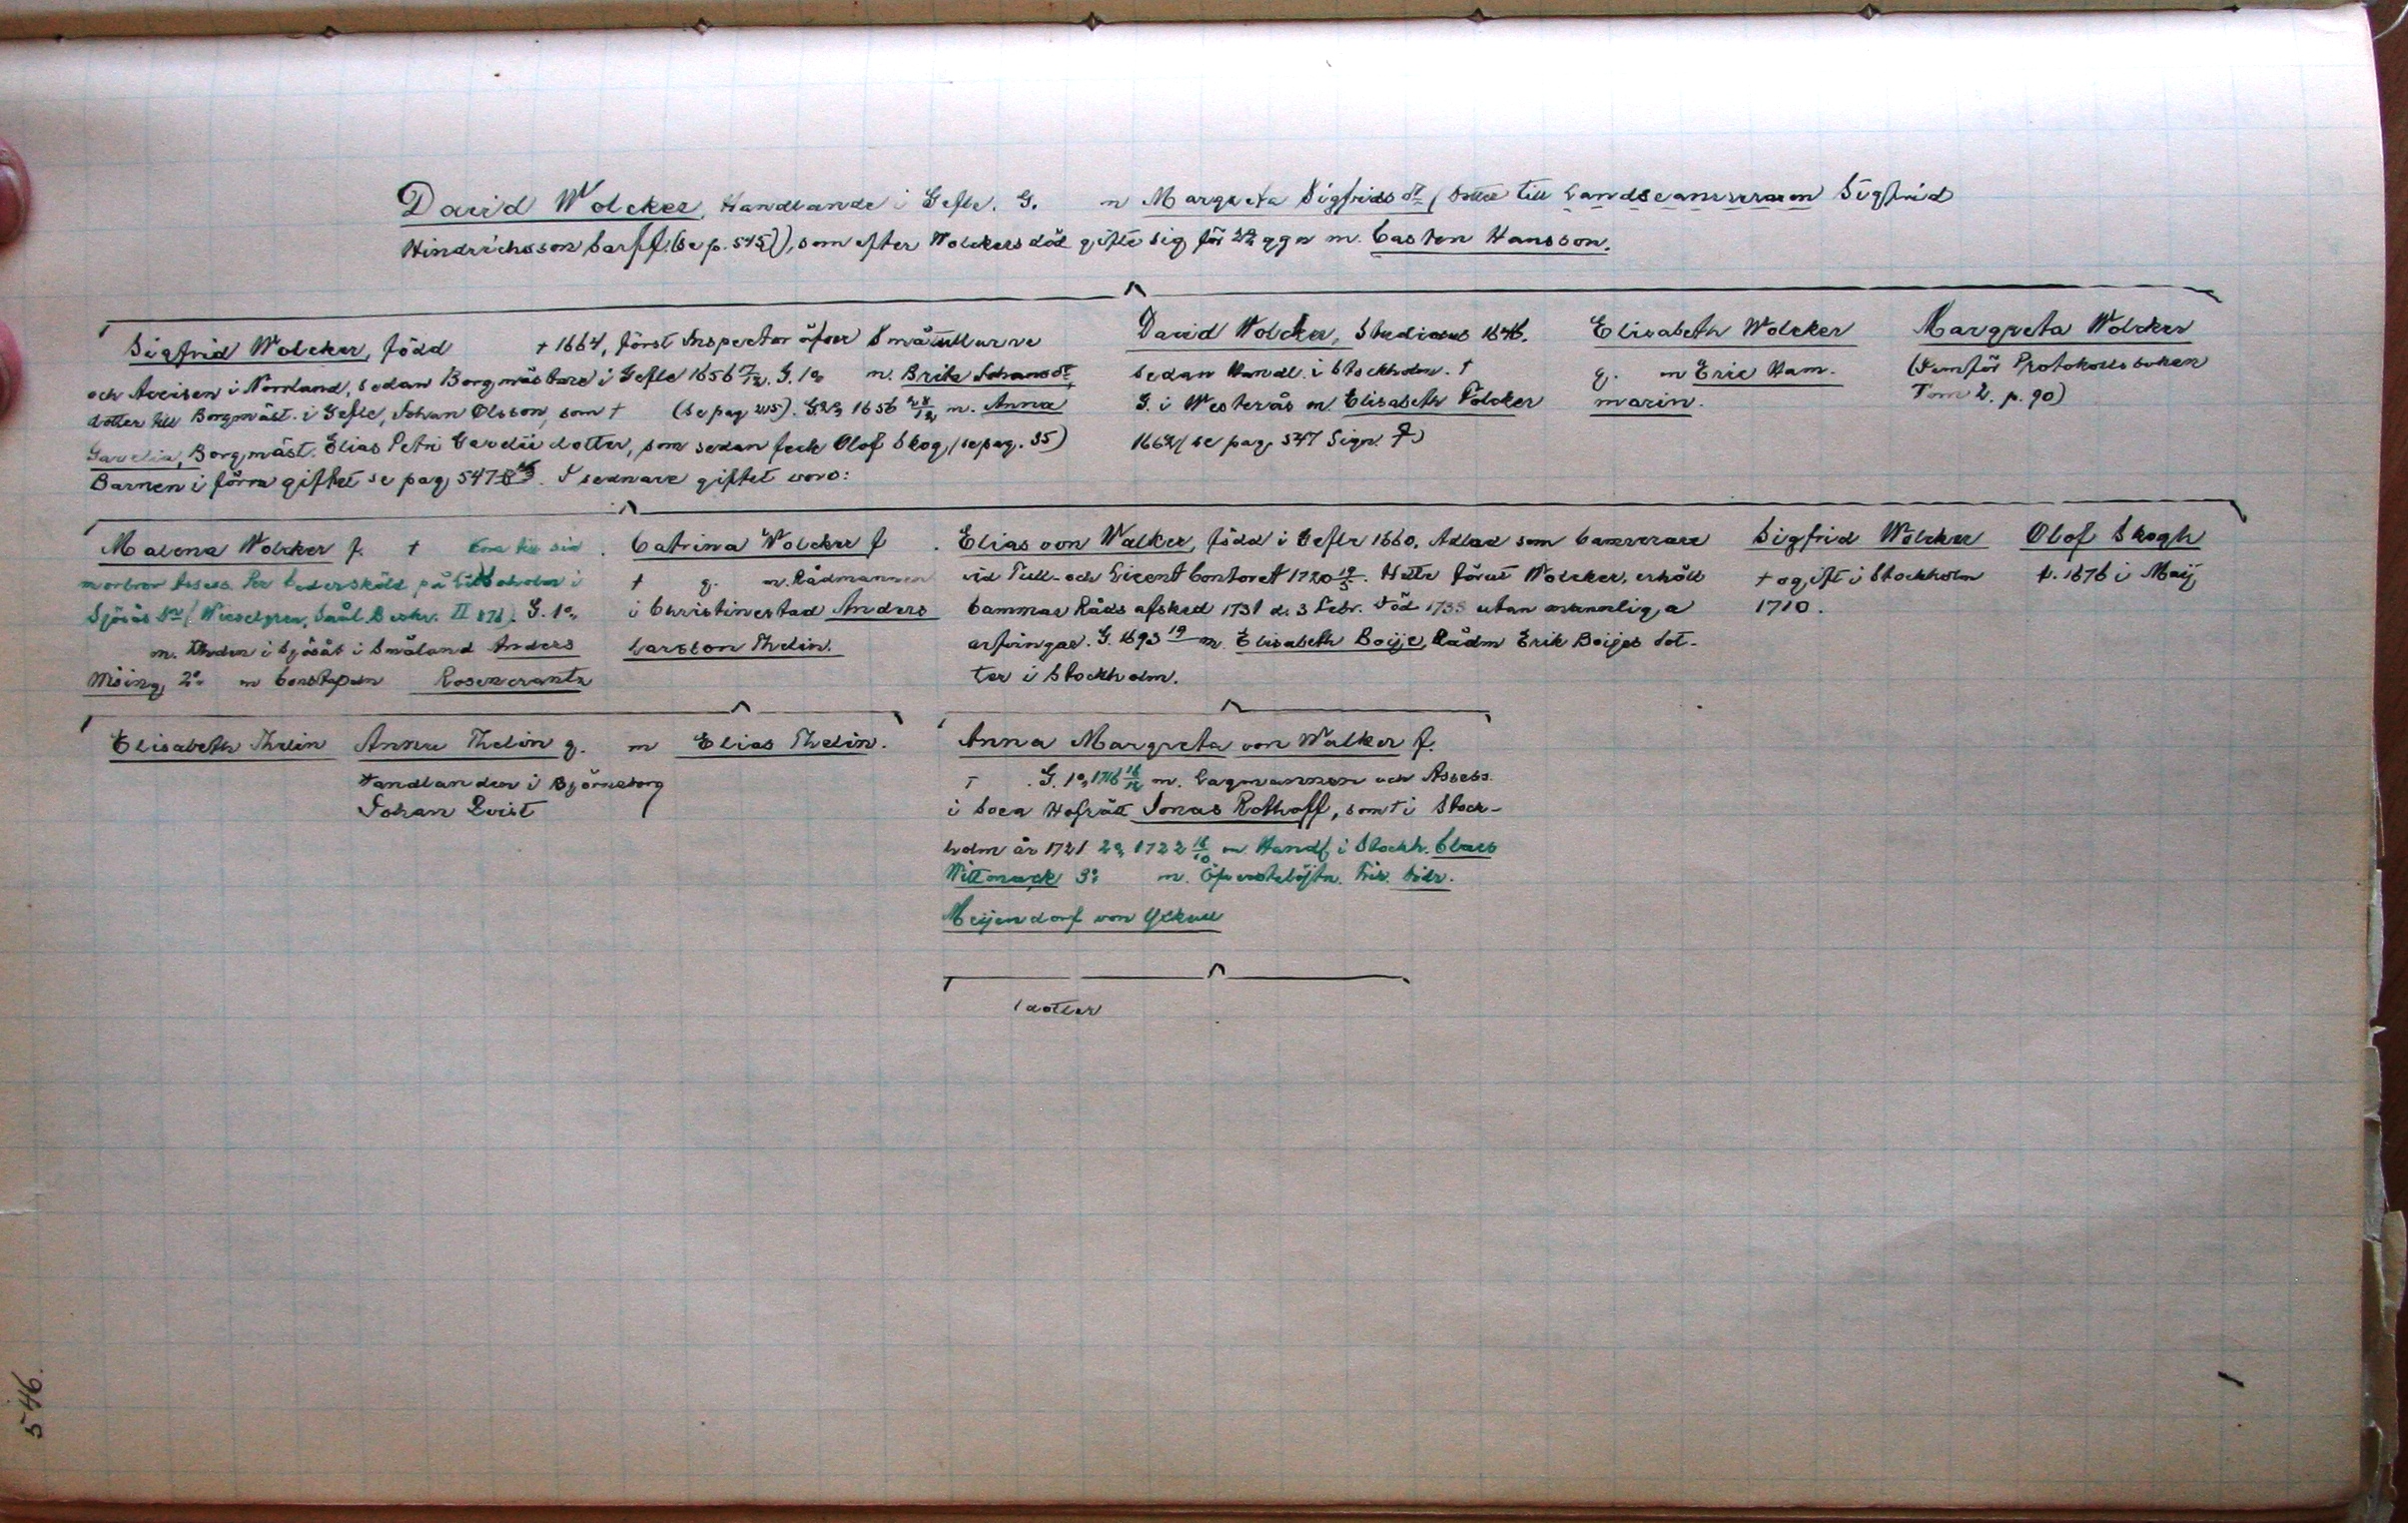 David Wolcker, Handlande i Gefle. G. m Margreta Sigfridsdr (dotter till Landscamreraren Sigfrid
Hindrichsson Carff. (se p. 545)), som efter Wolckers död gifte sig för 2dra ggn m. Casten Hansson.
Sigfrid Wolcker, född † 1664, först Inspector öfver Småtullarne
och Accisen i Norrland, sedan Borgmästare i Gefle 1656 G. 1o m. Brita Johansdr,
dotter till Borgmäst. i Gefle, Johan Olsson, som † (se pag 205). G. 2o, 1656 m. Anna
Gavelia, Borgmäst. Elias Petri Gavelii dotter, som sedan feck Olof Skog, (se pag. 35)
Barnen i förra giftet se pag, 547. I sednare giftet voro:
David Wolcker, Studiosus 1646.
sedan Handl. i Stockholm. †
G. i Westerås m. Elisabeth Fölcker
1662 (se pag. 547 Sign.
Elisabeth Wolcker
g. m Eric Ham-
marin.
Margreta Wolcker
(Jemför Protokollsboken
Tom 2. p. 90)
Malena Wolcker f. †
morbror Assess. Per Cedersköld på i
Sjösås Sn (Wieselgren, Smål. Beskr. II 878). G. 1o,
m. i Sjösås i Småland Anders
Wising, 2o m Constapeln Rosencrantz
Catrina Wolcker f
† g. m. Rådmannen
i Christinestad Anders
Larsson Thelin.
Elias von Walker, född i Gefle 1660. Adlad som Camrerare
vid Tull- och Licent Contoret 1720 19/5. Hette förut Wolcker, erhöll
Cammar Råds afsked 1731 d. 3 Febr. Död utan manliga
arfvingar. G. 1693 19 m. Elisabeth Boije, Rådm Erik Boijes dot-
ter i Stockholm.
Sigfrid Wölcker
† ogift i Stockholm
1710.
Olof Skogh
f. 1676 i Maij
Elisabeth Thelin
Anna Thelin g. m
Handlanden i Björneborg
Johan Qvist
Elias Thelin.
Anna Margreta von Walker f.
† . G. 1o, 1716 m. Lagmannen och Assess.
i Svea Hofrätt Jonas Rothoff, som † i Stock-
holm år 1721 2o, 1722 16/10 m Handl, i Stockh. Claes
Wittmack 3o m. Öfverstelöjtn. Frih.
Meijendorf von Yckull
1 dotter
546.